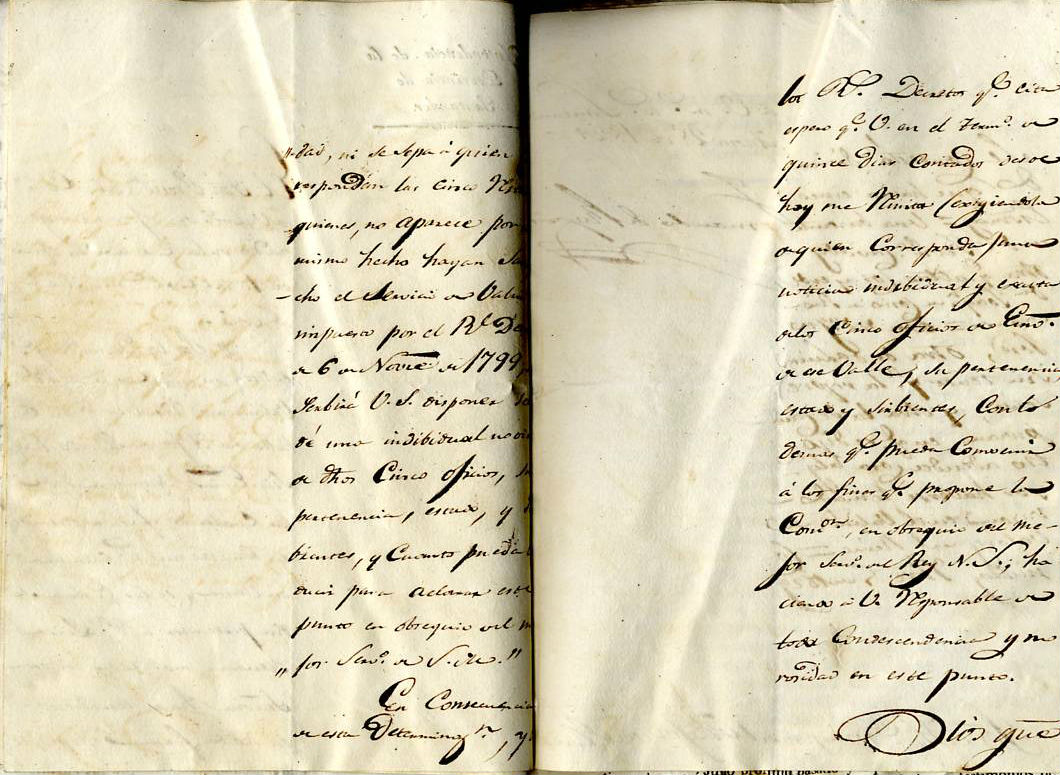 "dad, ni se sepa à quien
respondan las cinco
quienes, no aparece por
mismo hecho hayan
cho el servicio de Valim
impuesto por el Rl De
de 6 de Novre de 1799,
Serbirá V. S. disponer
dé una indibidual
de dhos Cinco oficios,
pertenencia, estado, y
bientes, y Cuanto pueda
ducir para aclarar este
punto en obsequio del
"jor Servo de S. M."
En Consecuencia
de esta Determinazn, y
los Rs Decretos qe cita
espero qe V. en el termo de
quince dias Contados desde
hoy me Remita (exigiendola
de quien Corresponda) una
noticia indibidual y exacta
de los Cinco oficios de
de ese Valle, su pertenencia
estado y Sirbientes, Con lo
demas qe pueda Combenir
á los fines qe propone la
Comon, en obsequio del me-
jor Servo del Rey N. S.; ha
ciendo á V. Responsable de
toda Condescendencia y mo
rosidad en este punto.
Dios gue